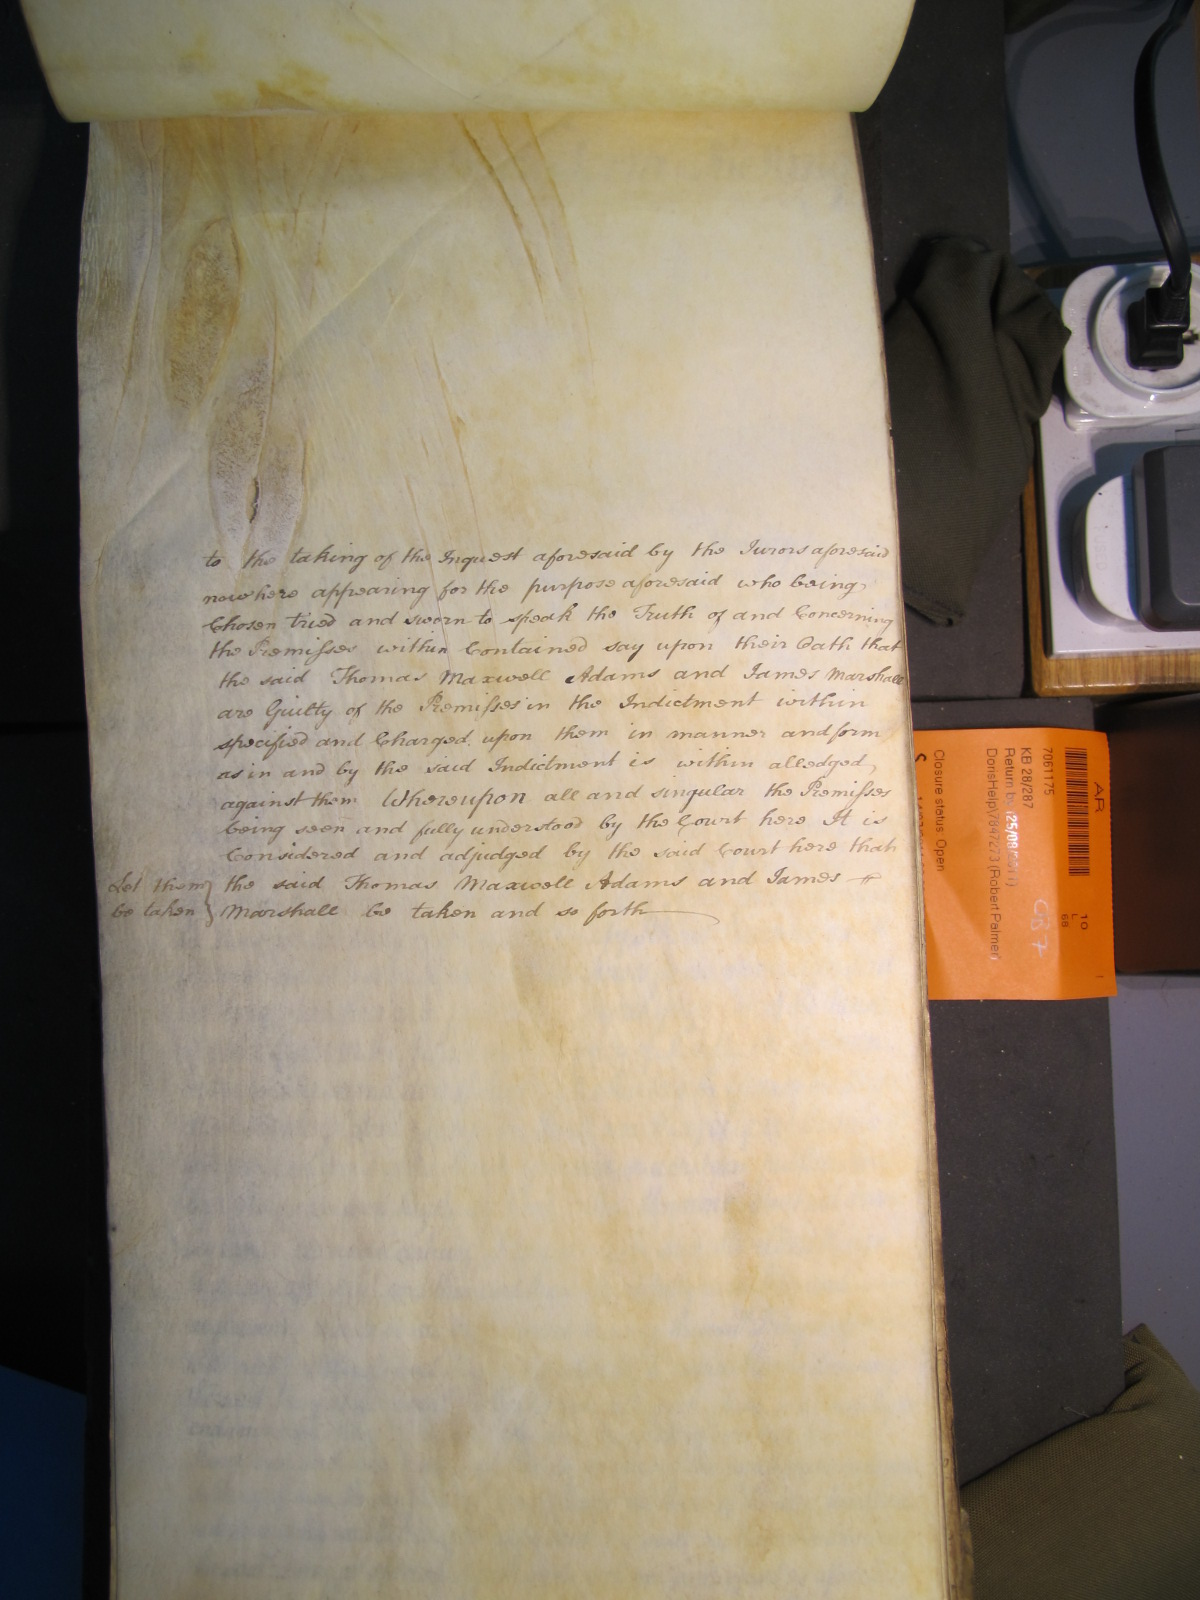 to the taking of the Inquest aforesaid by the Jurors aforesaid
now here appearing for the purpose aforesaid who being
Chosen tried and sworn to speak the Truth of and Concerning
the Premisses within Contained say upon their Oath that
the said Thomas Maxwell Adams and James Marshall
are Guilty of the Premisses in the Indictment within
specified and Charged upon them in manner and form
as in and by the said Indictment is within alledged
against them Whereupon all and singular the Premisses
being seen and fully understood by the Court here It is
Considered and adjudged by the said Court here that
Let them } the said Thomas Maxwell Adams and James
be taken } Marshall be taken and so forth
AR
7061175
KB 28/287
Return by (25/08/2011)
DorisHelp\7847273 (Robert Palmer)
Closure status: Open
10
L
68